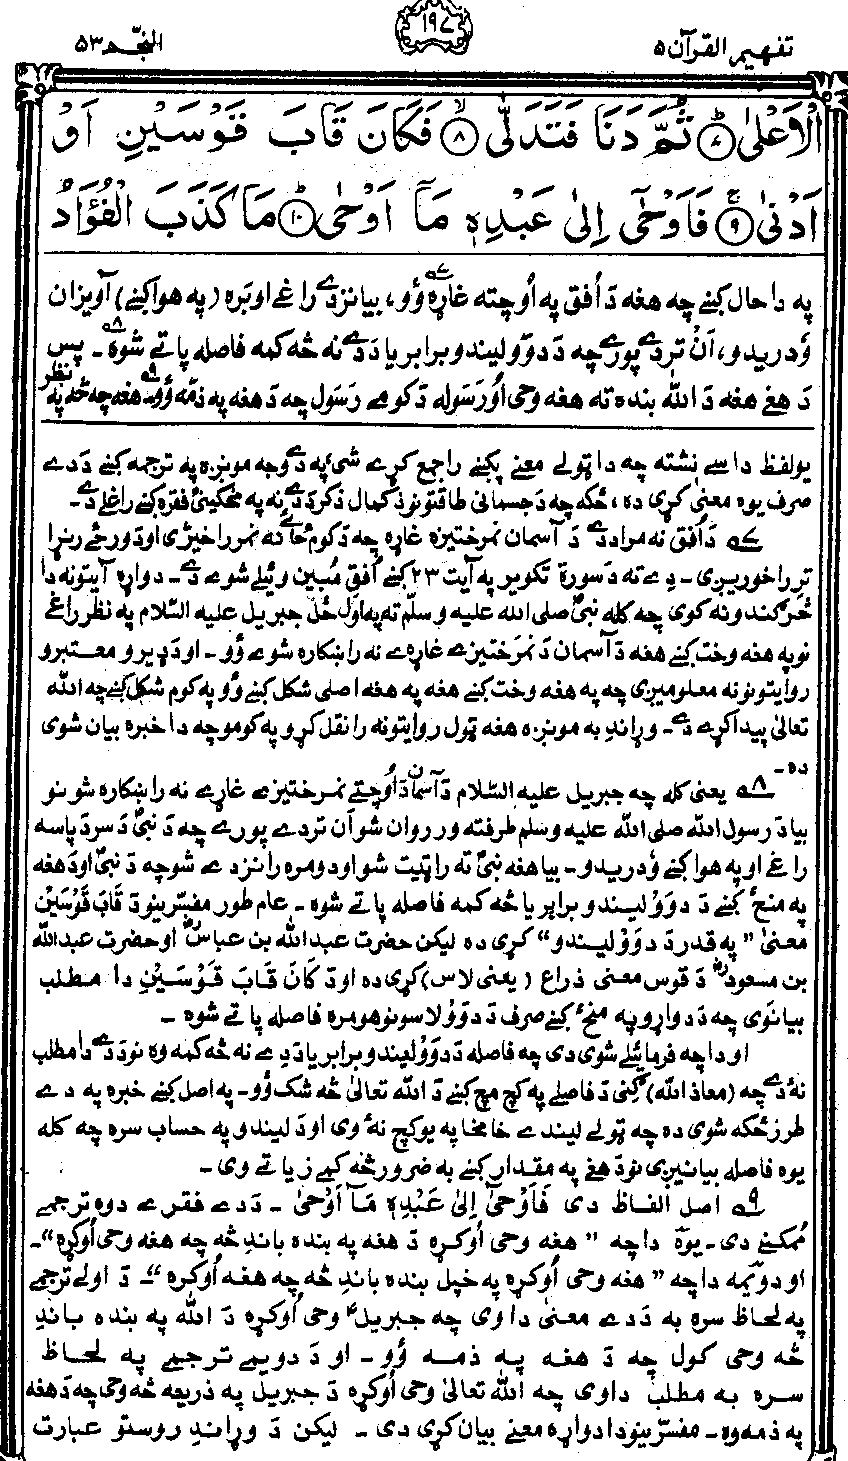 تفهیم القرآن ۵
۱۹۷
النجم ۵۳
الْاَعْلٰی ﴿۷﴾ ثُمَّ دَنَا فَتَدَلّٰی ﴿۸﴾ فَكَانَ قَابَ قَوْسَيْنِ اَوْ
اَدْنٰی ﴿۹﴾ فَاَوْحٰۤی اِلٰی عَبْدِهٖ مَاۤ اَوْحٰی ﴿۱۰﴾ مَا كَذَبَ الْفُؤَادُ
په دا حال کښے چه هغه دَ اُفق په اُوچته غاړه وُو ، بیا نزدے راغے اوبره (په هوا کښے) آویزان
وُدریدو، آن تردے پورے چه دَ دوو لیندو برابر یا دَ دے نه څه کمه فاصله پاتے شوه ـ پس
دَ هغے هغه دَ الله بنده ته هغه وحی اُورَسَوله دَ کومے رسول چه دَ هغه په ذمّه وُو ـ هغه چه څه په نظر
یو لفظ داسے نشته چه دا ټولے معنے پکښے راجع کړے شی ، په دے وجه مونږه په ترجمه کښے دَ دے
صرف یوه معنیٰ کړی ده ، ځکه چه دَ جسمانی طاقتونو دَ کمال ذکر دَ دے نه په مخکینی فقره کښے راغلے دے ـ
۷ دَ اُفق نه مراد دے دَ آسمان نمرختیزه غاړه چه دَ کوم ځائے نه نمر راخیژی او دَ ورځے رنړا
ترِ را خوریږی ـ دے ته دَ سورة تکویر په آیت ۲۳ کښے اُفق مُبین وئیلے شوے دے ـ دواړه آیتونه دا
څرګندونه کوی چه کله نبیؐ صلی الله علیه و سلّم ته په اول ځل جبریل علیه السّلام په نظر راغے
نو په هغه وخت کښے هغه دَ آسمان دَ نمرختیزے غاړے نه راښکاره شوے وُو ـ او دَ ډیرو معتبرو
روایتونو نه معلومیږی چه په هغه وخت کښے هغه په هغه اصلی شکل کښے وُو په کوم شکل کښے چه الله
تعالیٰ پیدا کړے دے ـ وړاندِ به مونږه هغه ټول روایتونه را نقل کړو په کومو چه دا خبره بیان شوی
ده ـ
۸ یعنی کله چه جبریل علیه السّلام دَ آسمان دَ اُوچتے نمرختیزے غاړے نه راښکاره شو نو
بیا دَ رسول الله صلی الله علیه وسلم طرف ته ور روان شو آن تردے پورے چه دَ نبیؐ دَ سر دَ پاسه
راغے او په هوا کښے وُدریدو ـ بیا هغه نبیؐ ته راټیټ شو او دومره رانزدے شو چه دَ نبیؐ او دَ هغه
په منځ کښے دَ دوو لیندو برابر یا څه کمه فاصله پاتے شوه ـ عام طور مفسّرینو دَ قَابَ قَوْسَیْنِ
معنیٰ " په قدر دَ دوو لیندو " کړی ده لیکن حضرت عبدالله بن عباسؓ او حضرت عبدالله
بن مسعودؓ دَ قوس معنی ذراع (یعنی لاس) کړی ده او دَ کَانَ قَابَ قَوْسَیْنِ دا مطلب
بیانوی چه دَ دواړو په منځ کښے صرف دَ دوو لاسونو هومره فاصله پاتے شوه ـ
او دا چه فرمائیلے شوی دی چه فاصله دَ دوو لیندو برابر یا دَ دے نه څه کمه وه نو دَ دے دا مطلب
نهٔ دے چه (معاذ الله) ګنی دَ فاصلے په کچ مچ کښے دَ الله تعالیٰ څه شک وُو ـ په اصل کښے خبره په دے
طرز ځکه شوی ده چه ټولے لیندے خامخا په یو کچ نهٔ وی او دَ لیندو په حساب سره چه کله
یوه فاصله بیانیږی نو دَ هغے په مقدار کښے به ضرور څه کمے زیاتے وی ـ
۹ اصل الفاظ دی فَاَوْحٰۤی اِلٰی عَبْدِهٖ مَاۤ اَوْحٰی ـ دَ دے فقرے دوه ترجمے
مُمکنے دی ـ یوه دا چه " هغه وحی اُوکړه دَ هغه په بنده باندِ څه چه هغه وحی اُوکړه " ـ
او دوئمه دا چه " هغه وحی اُوکړه په خپل بنده باندِ څه چه هغه اُوکړه " ـ دَ اولے ترجمے
په لحاظ سره به دَ دے معنیٰ دا وی چه جبریلؑ وحی اُوکړه دَ الله په بنده باندِ
څه وحی کول چه دَ هغه په ذمه وُو ـ او دَ دویمے ترجمے په لحاظ
سره به مطلب دا وی چه الله تعالیٰ وحی اُوکړه دَ جبریل په ذریعه څه وحی چه دَ هغه
په ذمه وه ـ مفسّرینو دا دواړه معنے بیان کړی دی ـ لیکن دَ وړاندِ روستو عبارت